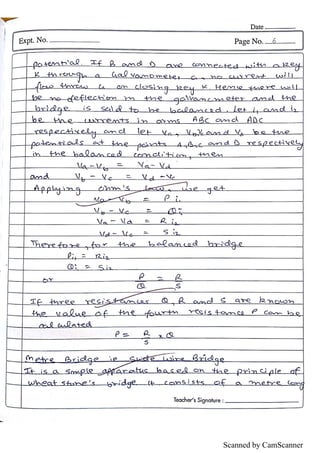 Date
Expt. No.
Page No. 6
potential. If B and D are connected with a key
K through a Galvanometer G, no current will
flow throw G on closing key K Hence there will
be no deflection in the galvancmeter and the
bridge is said to be balanced. let i1 and i2
be the currents in arms ABC and ADC
respectively and let Va, Vb, Vc and Vd be the
potencials at the points A,B,C and D respectively
in the balanced condition, then
Va - Vb = Va - Vd
and Vb - Vc = Vd - Vc
Applying ohm's law, we get
Va - Vb = P i1
Vb - Vc = Qi1
Va - Vd = R i2
Vd - Vc = S i2
Therefore, for the balanced bridge
Pi1 = Ri2
Qi1 = Si2
or P/Q = R/S
If three resistances Q, R and S are known
the value of the fourth resistance P can be
calculated
P = R/S x Q
Metre Bridge ie Slide wire Bridge
It is a simple apparatus based on the principle of
wheat stone's bridge it consists of a metre long
Teacher's Signature :
Scanned by CamScanner